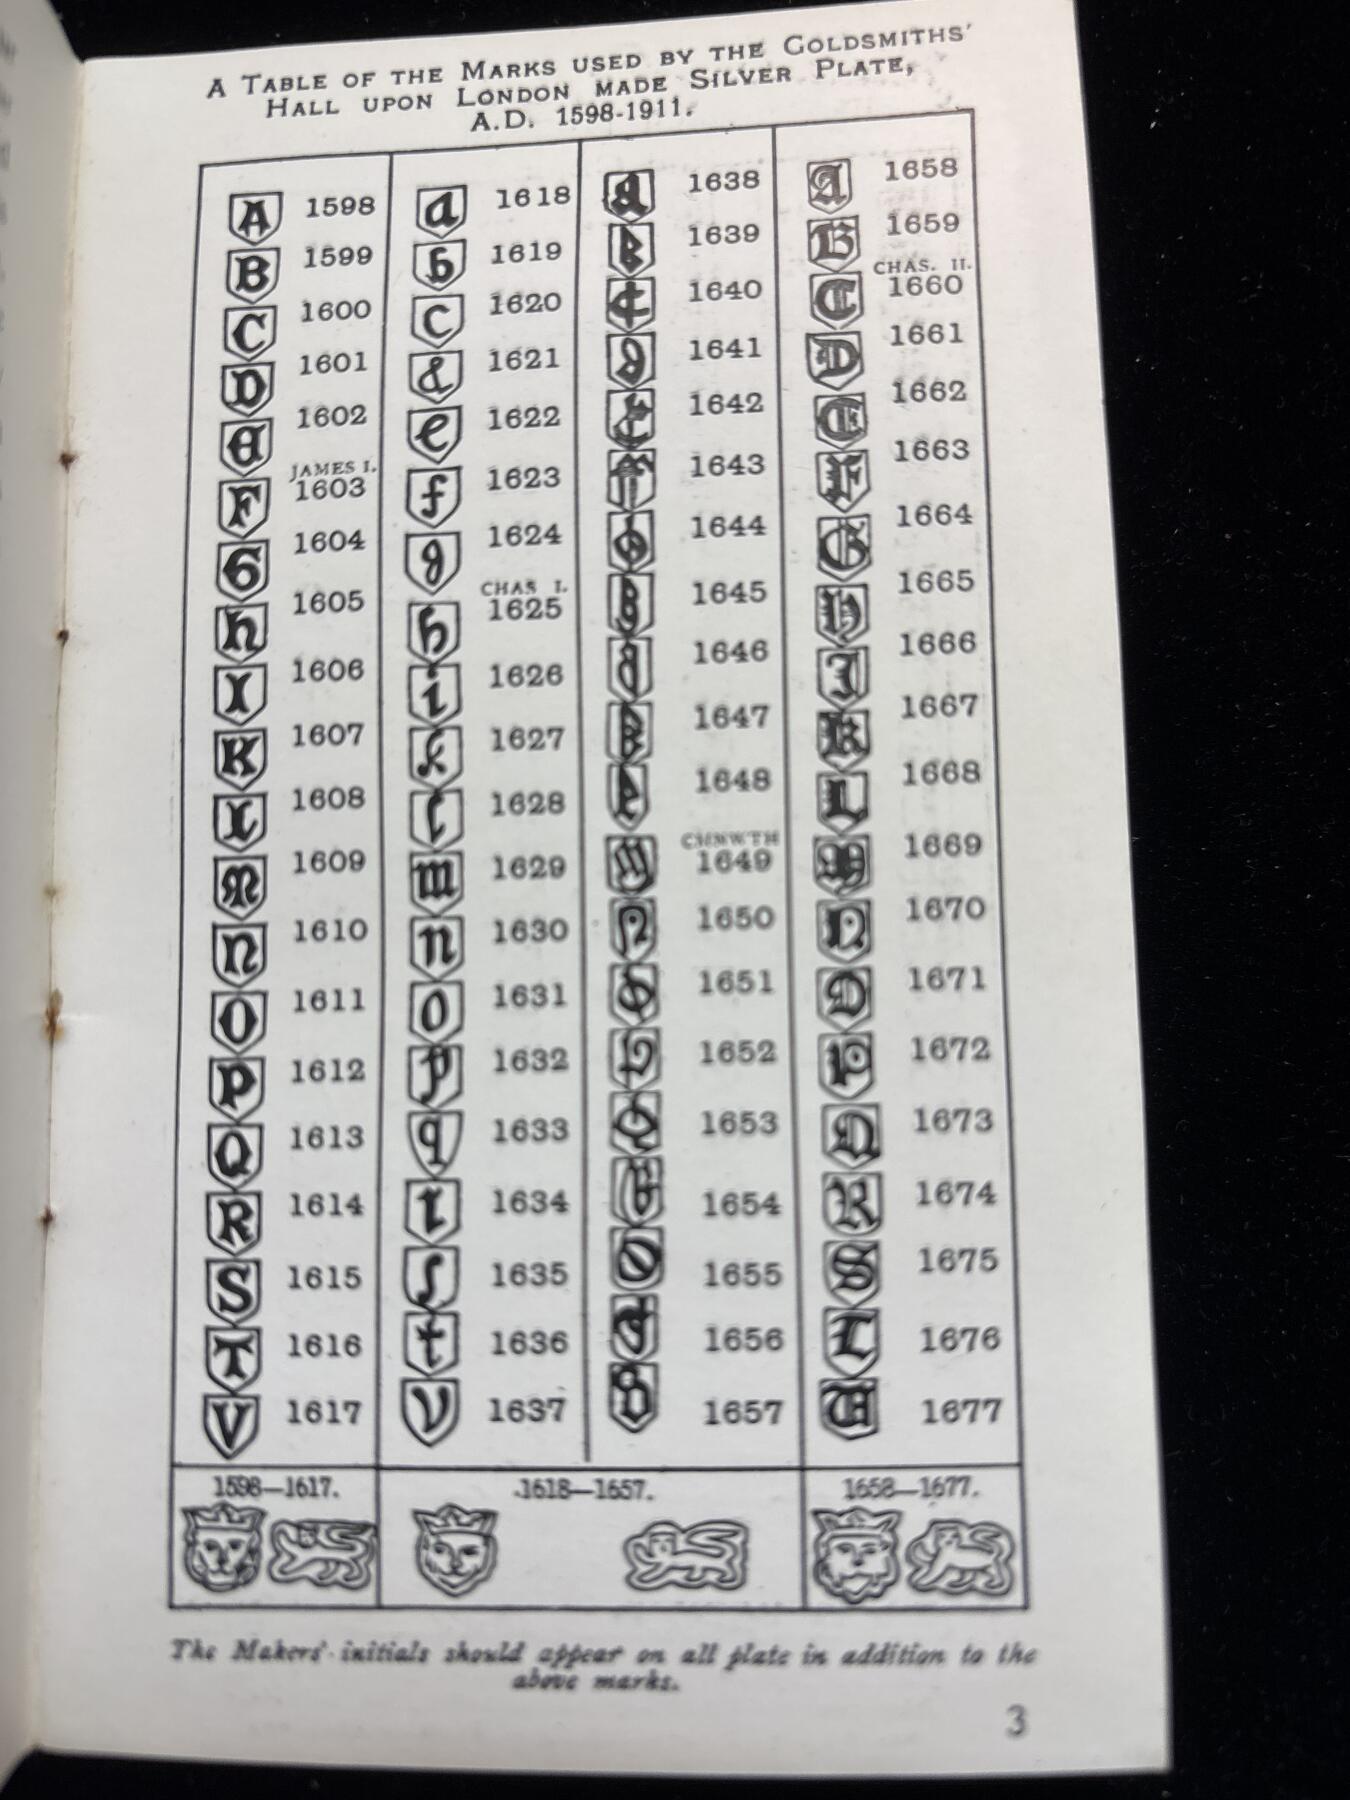 A TABLE OF THE MARKS USED BY THE GOLDSMITHS'
HALL UPON LONDON MADE SILVER PLATE,
A.D. 1598-1911.
A 1598
B 1599
C 1600
D 1601
E 1602
JAMES I.
F 1603
G 1604
h 1605
I 1606
K 1607
L 1608
M 1609
N 1610
O 1611
P 1612
Q 1613
R 1614
S 1615
T 1616
V 1617
a 1618
b 1619
c 1620
d 1621
e 1622
f 1623
g 1624
CHAS I.
h 1625
i 1626
k 1627
l 1628
m 1629
n 1630
o 1631
p 1632
q 1633
r 1634
ſ 1635
t 1636
V 1637
1638
1639
1640
1641
1642
1643
1644
1645
1646
1647
1648
CMNWTH
1649
1650
1651
1652
1653
1654
1655
1656
1657
A 1658
B 1659
CHAS. II.
C 1660
D 1661
E 1662
F 1663
G 1664
H 1665
I 1666
K 1667
L 1668
M 1669
N 1670
O 1671
P 1672
Q 1673
R 1674
S 1675
T 1676
U 1677
1598—1617.
1618—1657.
1658—1677.
The Makers' initials should appear on all plate in addition to the
above marks.
3